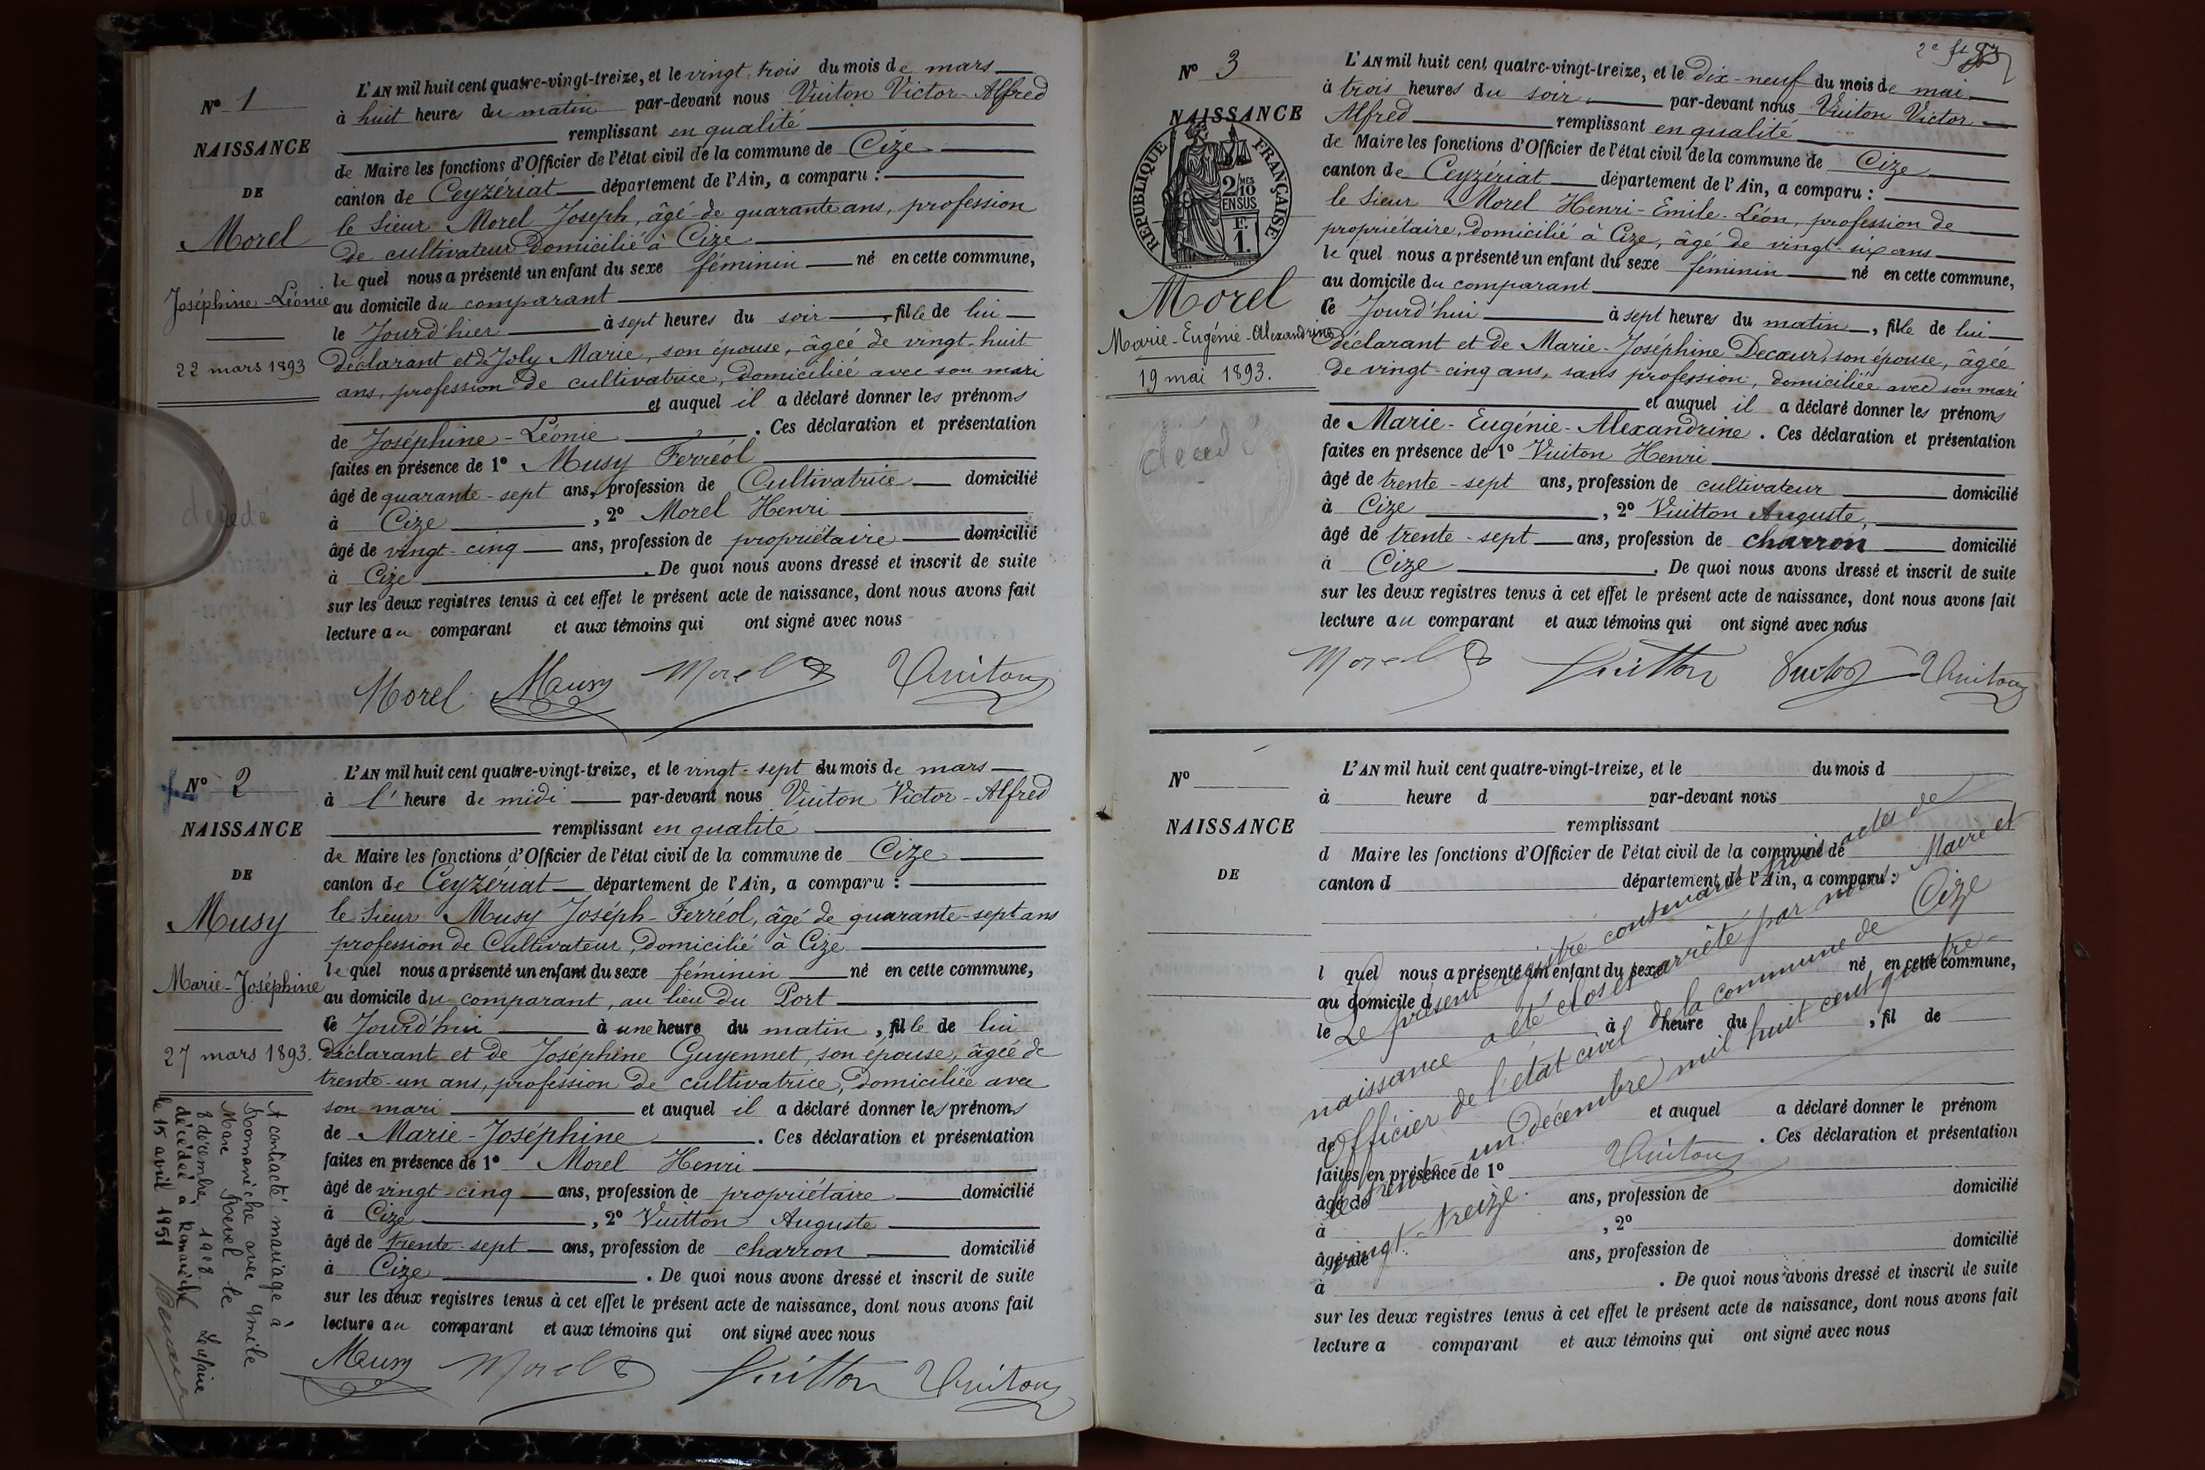 N° 1
NAISSANCE
DE
Morel
Joséphine-Léonie
22 mars 1893
décédé
L'AN mil huit cent quatre-vingt-treize, et le vingt-trois du mois de mars
à huit heures du matin par-devant nous Vuiton Victor-Alfred
remplissant en qualité
de Maire les fonctions d'Officier de l'état civil de la commune de Cize
canton de Ceyzériat département de l'Ain, a comparu :
le Sieur Morel Joseph, âgé de quarante ans, profession
de cultivateur domicilié à Cize
le quel nous a présenté un enfant du sexe féminin né en cette commune,
au domicile du comparant
le Jourd'hier à sept heures du soir, fille de lui
déclarant et de Joly Marie, son épouse, âgée de vingt-huit
ans, profession de cultivatrice, domiciliée avec son mari
et auquel il a déclaré donner les prénoms
de Joséphine-Léonie. Ces déclaration et présentation
faites en présence de 1° Musy Ferréol
âgé de quarante-sept ans, profession de Cultivatrice domicilié
à Cize, 2° Morel Henri
âgé de vingt-cinq ans, profession de propriétaire domicilié
à Cize. De quoi nous avons dressé et inscrit de suite
sur les deux registres tenus à cet effet le présent acte de naissance, dont nous avons fait
lecture au comparant et aux témoins qui ont signé avec nous
Morel Musy Morel Vuiton
N° 2
NAISSANCE
DE
Musy
Marie-Joséphine
27 mars 1893.
A contracté mariage à
Romanèche avec Emile
Marc Revel le
8 décembre 1918.
décédée à Romanèche
le 15 avril 1951
L'AN mil huit cent quatre-vingt-treize, et le vingt-sept du mois de mars
à l' heure de midi par-devant nous Vuiton Victor-Alfred
remplissant en qualité
de Maire les fonctions d'Officier de l'état civil de la commune de Cize
canton de Ceyzériat département de l'Ain, a comparu :
le Sieur Musy Joséph-Ferréol, âgé de quarante-sept ans
profession de Cultivateur, domicilié à Cize
le quel nous a présenté un enfant du sexe féminin né en cette commune,
au domicile du comparant, au lieu du Port
ce Jourd'hui à une heure du matin, fille de lui
déclarant et de Joséphine Guyennet, son épouse, âgée de
trente-un ans, profession de cultivatrice, domiciliée avec
son mari et auquel il a déclaré donner les prénoms
de Marie-Joséphine. Ces déclaration et présentation
faites en présence de 1° Morel Henri
âgé de vingt-cinq ans, profession de propriétaire domicilié
à Cize, 2° Vuitton Auguste
âgé de trente-sept ans, profession de charron domicilié
à Cize. De quoi nous avons dressé et inscrit de suite
sur les deux registres tenus à cet effet le présent acte de naissance, dont nous avons fait
lecture au comparant et aux témoins qui ont signé avec nous
Musy Morel Vuitton Vuiton
N° 3
NAISSANCE
REPUBLIQUE FRANÇAISE
2/10 MES
EN SUS
F.
1.
Morel
Marie-Eugénie-Alexandrine
19 mai 1893.
décédé
L'AN mil huit cent quatre-vingt-treize, et le dix-neuf du mois de mai
à trois heures du soir, par-devant nous Vuiton Victor
Alfred remplissant en qualité
de Maire les fonctions d'Officier de l'état civil de la commune de Cize
canton de Ceyzériat département de l'Ain, a comparu :
le Sieur Morel Henri-Emile-Léon, profession de
propriétaire, domicilié à Cize, âgé de vingt-six ans
le quel nous a présenté un enfant du sexe féminin né en cette commune,
au domicile du comparant
ce Jourd'hui à sept heures du matin, fille de lui
déclarant et de Marie-Joséphine Decœur, son épouse, âgée
de vingt-cinq ans, sans profession, domiciliée avec son mari
et auquel il a déclaré donner les prénoms
de Marie-Eugénie-Alexandrine. Ces déclaration et présentation
faites en présence de 1° Vuiton Henri
âgé de trente-sept ans, profession de cultivateur domicilié
à Cize, 2° Vuitton Auguste,
âgé de trente-sept ans, profession de charron domicilié
à Cize. De quoi nous avons dressé et inscrit de suite
sur les deux registres tenus à cet effet le présent acte de naissance, dont nous avons fait
lecture au comparant et aux témoins qui ont signé avec nous
Morel Vuitton Vuiton Vuiton
N°
NAISSANCE
DE
L'AN mil huit cent quatre-vingt-treize, et le du mois d
à heure d par-devant nous
remplissant
d Maire les fonctions d'Officier de l'état civil de la commune de
canton d département de l'Ain, a comparu :
l quel nous a présenté un enfant du sexe né en cette commune,
au domicile d
le à heure du , fil de
et auquel a déclaré donner le prénom
de . Ces déclaration et présentation
faites en présence de 1°
âgé de ans, profession de domicilié
à , 2°
âgé de ans, profession de domicilié
à . De quoi nous avons dressé et inscrit de suite
sur les deux registres tenus à cet effet le présent acte de naissance, dont nous avons fait
lecture a comparant et aux témoins qui ont signé avec nous
Le présent registre contenant trois actes de
naissance a été clos et arrêté par nous Maire et
Officier de l'état civil de la commune de Cize
le trente-un décembre mil huit cent quatre-
vingt-treize.
Vuiton